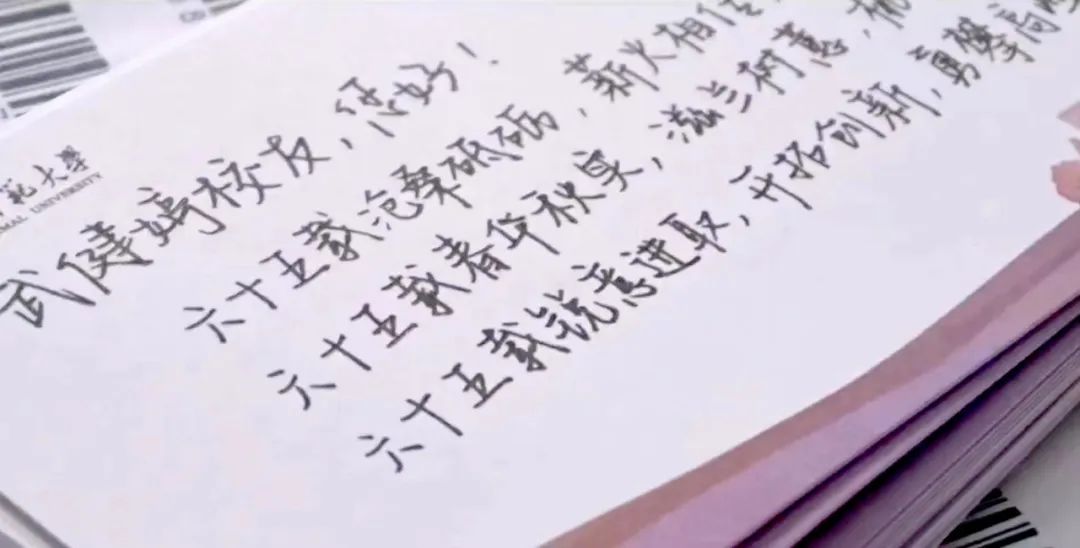 范大學
MAL UNIVERSITY
武健婷校友，您好！
六十五载沧桑砥砺，薪火相传
六十五载春华秋实，滋兰树蕙，桃
六十五载锐意进取，开拓创新，勇攀高峰